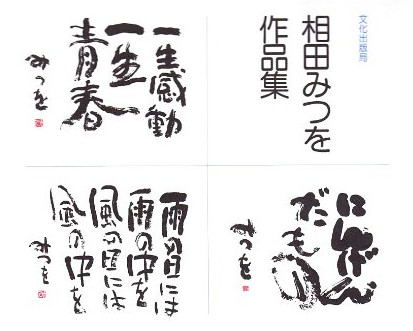 文化出版局
相田みつを
作品集
一生感動
一生
青春
みつを
にんげん
だもの
みつを
雨の日には
雨の中を
風の日には
風の中を
みつを